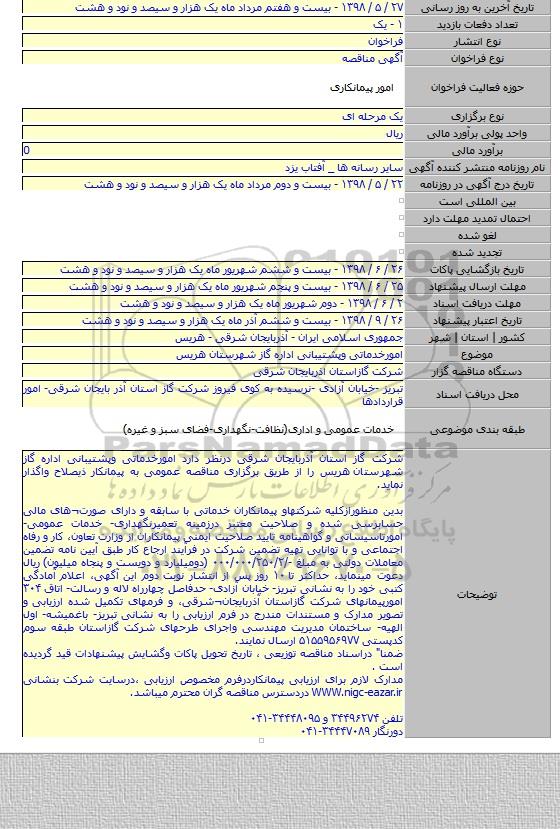 تاریخ آخرین به روز رسانی ۲۷ / ۵ / ۱۳۹۸ - بیست و هفتم مرداد ماه یک هزار و سیصد و نود و هشت
تعداد دفعات بازدید ۱ - یک
نوع انتشار فراخوان
نوع فراخوان آگهی مناقصه
حوزه فعالیت فراخوان امور پیمانکاری
نوع برگزاری یک مرحله ای
واحد پولی برآورد مالی ریال
برآورد مالی 0
نام روزنامه منتشر کننده آگهی سایر رسانه ها _ آفتاب یزد
تاریخ درج آگهی در روزنامه ۲۲ / ۵ / ۱۳۹۸ - بیست و دوم مرداد ماه یک هزار و سیصد و نود و هشت
بین المللی است
احتمال تمدید مهلت دارد
لغو شده
تجدید شده
تاریخ بازگشایی پاکات ۲۶ / ۶ / ۱۳۹۸ - بیست و ششم شهریور ماه یک هزار و سیصد و نود و هشت
مهلت ارسال پیشنهاد ۲۵ / ۶ / ۱۳۹۸ - بیست و پنجم شهریور ماه یک هزار و سیصد و نود و هشت
مهلت دریافت اسناد ۲ / ۶ / ۱۳۹۸ - دوم شهریور ماه یک هزار و سیصد و نود و هشت
تاریخ اعتبار پیشنهاد ۲۶ / ۹ / ۱۳۹۸ - بیست و ششم آذر ماه یک هزار و سیصد و نود و هشت
کشور | استان | شهر جمهوری اسلامی ایران - آذربایجان شرقی - هریس
موضوع امورخدماتی وپشتیبانی اداره گاز شهرستان هریس
دستگاه مناقصه گزار شرکت گازاستان آذربایجان شرقی
محل دریافت اسناد تبریز -خیابان آزادی -نرسیده به کوی فیروز شرکت گاز استان آذر بایجان شرقی- امور
قراردادها
طبقه بندی موضوعی خدمات عمومی و اداری(نظافت-نگهداری-فضای سبز و غیره)
ParsNamadData
مرکز فرآوری اطلاعات پارس نماد داده ها
توضیحات
شرکت گاز استان آذربایجان شرقی درنظر دارد امورخدماتی وپشتیبانی اداره گاز
شهرستان هریس را از طریق برگزاری مناقصه عمومی به پیمانکار ذیصلاح واگذار
نماید.
بدین منظورازکلیه شرکتهاو پیمانکاران خدماتی با سابقه و دارای صورت¬های مالی
حسابرسی شده و صلاحیت معتبر درزمینه تعمیرنگهداری- خدمات عمومی-
امورتاسیساتی و گواهینامه تایید صلاحیت ایمنی پیمانکاران از وزارت تعاون، کار و رفاه
اجتماعی و با توانایی تهیه تضمین شرکت در فرآیند ارجاع کار طبق آیین نامه تضمین
معاملات دولتی به مبلغ -/۲/۲۵۰/۰۰۰/۰۰۰ (دومیلیارد و دویست و پنجاه میلیون) ریال
دعوت مینماید، حداکثر تا ۱۰ روز پس از انتشار نوبت دوم این آگهی، اعلام آمادگی
کتبی خود را به نشانی تبریز- خیابان آزادی- حدفاصل چهارراه لاله و رسالت- اتاق ۳۰۴
امورپیمانهای شرکت گازاستان آذربایجان¬شرقی، و فرمهای تکمیل شده ارزیابی و
تصویر مدارک و مستندات مندرج در فرم ارزیابی را به نشانی تبریز- باغمیشه- اول
الهیه- ساختمان مدیریت مهندسی واجرای طرحهای شرکت گازاستان طبقه سوم
کدپستی ۵۱۵۵۹۵۶۹۷۷ ارسال نمایند.
ضمنا" دراسناد مناقصه توزیعی ، تاریخ تحویل پاکات وگشایش پیشنهادات قید گردیده
است .
مدارک لازم برای ارزیابی پیمانکاردرفرم مخصوص ارزیابی ،درسایت شرکت بنشانی
WWW.nigc-eazar.ir دردسترس مناقصه گران محترم میباشد.
تلفن ۳۴۴۹۶۲۷۴ و ۳۴۴۴۸۰۹۵-۰۴۱
دورنگار ۳۴۴۴۷۰۸۹-۰۴۱